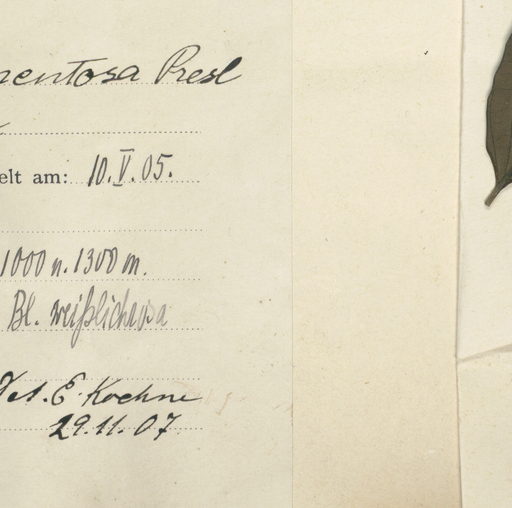 mentosa Presl
elt am: 10.V.05.
1000 u. 1300 m.
Bl. weißlichrosa
Det. E. Koehne
29.11.07.